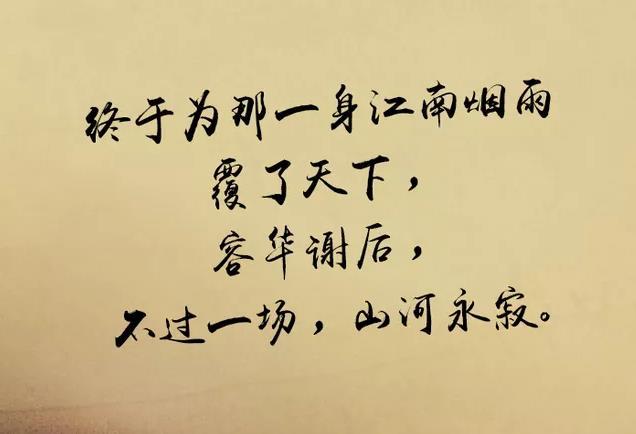 终于为那一身江南烟雨
覆了天下，
容华谢后，
不过一场，山河永寂。